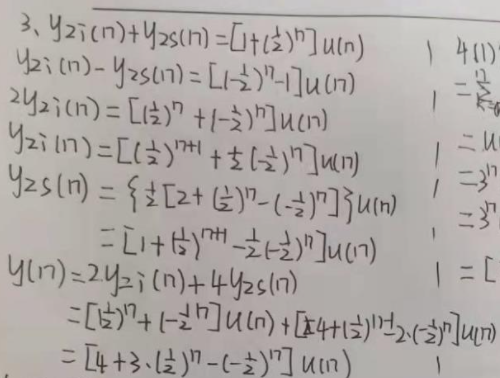 3、y₂ᵢ(n)+y₂ₛ(n)=[1+(½)ⁿ]u(n)
y₂ᵢ(n)-y₂ₛ(n)=[(-½)ⁿ-1]u(n)
2y₂ᵢ(n)=[(½)ⁿ+(-½)ⁿ]u(n)
y₂ᵢ(n)=[(½)ⁿ⁺¹+½(-½)ⁿ]u(n)
y₂ₛ(n)={½[2+(½)ⁿ-(-½)ⁿ]}u(n)
=[1+(½)ⁿ⁺¹-½(-½)ⁿ]u(n)
y(n)=2y₂ᵢ(n)+4y₂ₛ(n)
=[(½)ⁿ+(-½)ⁿ]u(n)+[4+(½)ⁿ⁻¹-2·(-½)ⁿ]u(n)
=[4+3·(½)ⁿ-(-½)ⁿ]u(n)
4(1)
=
= u
=3ⁿ
=3ⁿ
=[